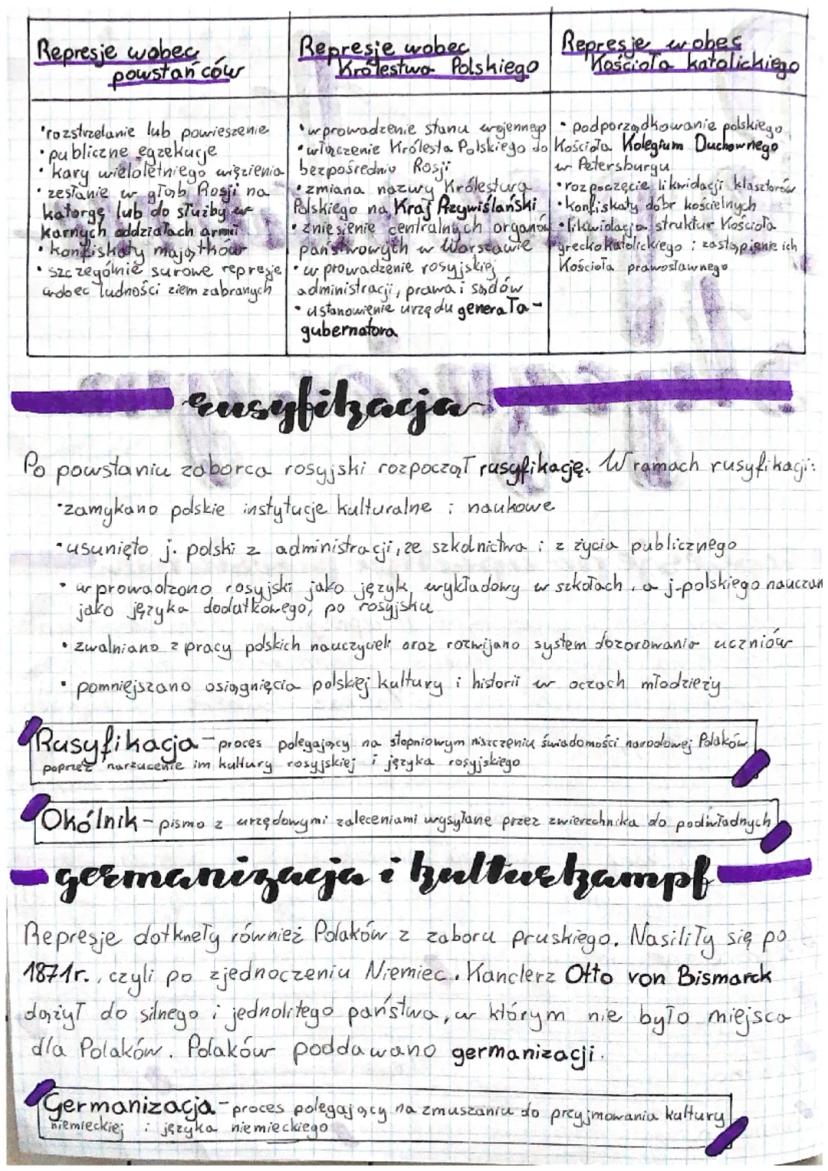 Represje wobec
powstańców
•rozstrzelanie lub powieszenie
•publiczne egzekucje
• kary wieloletniego więzienia
• zesłanie w głąb Rosji na
katorgę lub do służby w
karnych oddziałach armii
• konfiskaty majątków
• szczególnie surowe represje
wobec ludności ziem zabranych
Represje wobec
Królestwa Polskiego
•wprowadzenie stanu wojennego
•włączenie Królesta Polskiego do
bezpośrednio Rosji
•zmiana nazwy Królestwa
Polskiego na Kraj Przywiślański
• zniesienie centralnych organów
państwowych w Warszawie
• wprowadzenie rosyjskiej
administracji, prawa i sądów
• ustanowienie urzędu generała-
gubernatora
Represje wobec
Kościoła katolickiego
• podporządkowanie polskiego
Kościoła Kolegium Duchownego
w Petersburgu
•rozpoczęcie likwidacji klasztorów
•konfiskaty dóbr kościelnych
•likwidacja struktur Kościoła
greckokatolickiego i zastąpienie ich
Kościoła prawosławnego
rusyfikacja
Po powstaniu zaborca rosyjski rozpoczął rusyfikację. W ramach rusyfikacji:
•zamykano polskie instytucje kulturalne i naukowe
•usunięto j. polski z administracji, ze szkolnictwa i z życia publicznego
• wprowadzono rosyjski jako język wykładowy w szkołach, a j.polskiego nauczan
jako języka dodatkowego, po rosyjsku
• zwalniano z pracy polskich nauczycieli oraz rozwijano system dozorowania uczniów
• pomniejszano osiągnięcia polskiej kultury i historii w oczach młodzieży
Rusyfikacja - proces polegający na stopniowym niszczeniu świadomości narodowej Polaków
poprzez narzucenie im kultury rosyjskiej i języka rosyjskiego
Okólnik - pismo z urzędowymi zaleceniami wysyłane przez zwierzchnika do podwładnych
germanizacja i kulturkampf
Represje dotknęły również Polaków z zaboru pruskiego. Nasiliły się po
1871r., czyli po zjednoczeniu Niemiec. Kanclerz Otto von Bismarck
dążył do silnego i jednolitego państwa, w którym nie było miejsca
dla Polaków. Polaków poddawano germanizacji.
Germanizacja - proces polegający na zmuszaniu do przyjmowania kultury
niemieckiej i języka niemieckiego